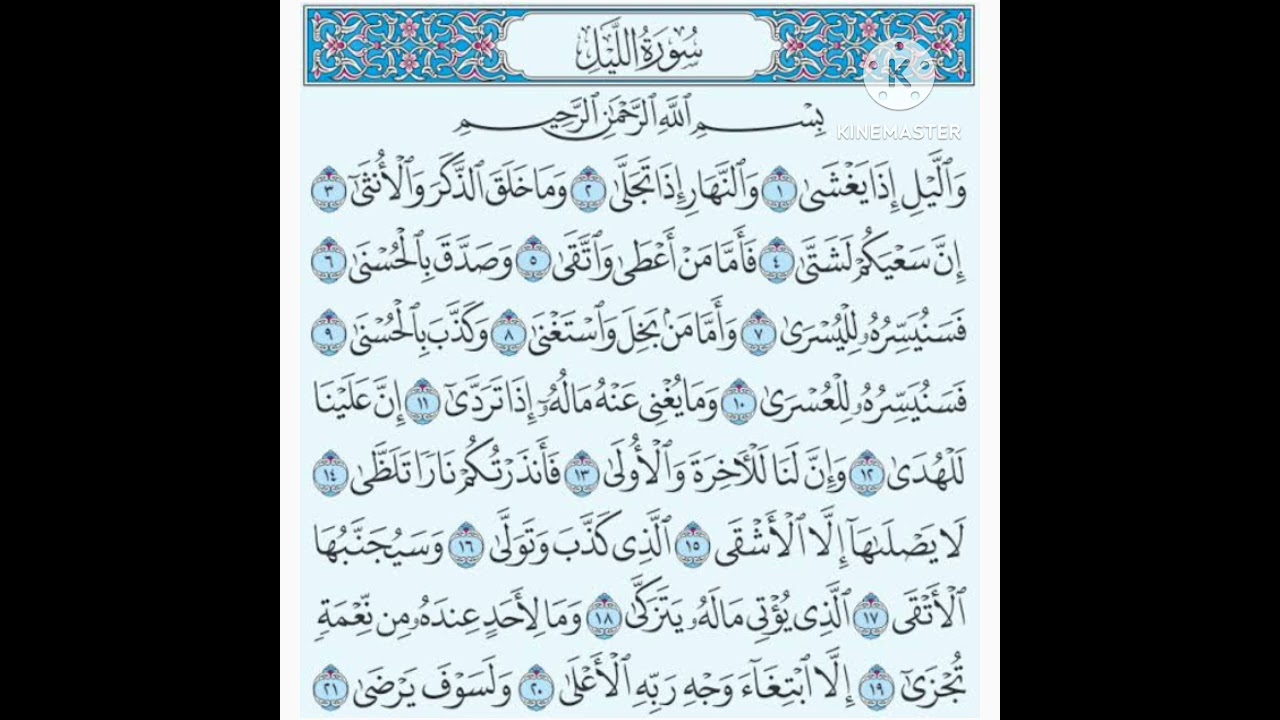 سُورَةُ اللَّيۡلِ
بِسۡمِ ٱللَّهِ ٱلرَّحۡمَٰنِ ٱلرَّحِيمِ
KINEMASTER
وَٱلَّيۡلِ إِذَا يَغۡشَىٰ ١ وَٱلنَّهَارِ إِذَا تَجَلَّىٰ ٢ وَمَا خَلَقَ ٱلذَّكَرَ وَٱلۡأُنثَىٰٓ ٣
إِنَّ سَعۡيَكُمۡ لَشَتَّىٰ ٤ فَأَمَّا مَنۡ أَعۡطَىٰ وَٱتَّقَىٰ ٥ وَصَدَّقَ بِٱلۡحُسۡنَىٰ ٦
فَسَنُيَسِّرُهُۥ لِلۡيُسۡرَىٰ ٧ وَأَمَّا مَنۢ بَخِلَ وَٱسۡتَغۡنَىٰ ٨ وَكَذَّبَ بِٱلۡحُسۡنَىٰ ٩
فَسَنُيَسِّرُهُۥ لِلۡعُسۡرَىٰ ١٠ وَمَا يُغۡنِي عَنۡهُ مَالُهُۥٓ إِذَا تَرَدَّىٰٓ ١١ إِنَّ عَلَيۡنَا
لَلۡهُدَىٰ ١٢ وَإِنَّ لَنَا لَلۡأٓخِرَةَ وَٱلۡأُولَىٰ ١٣ فَأَنذَرۡتُكُمۡ نَارٗا تَلَظَّىٰ ١٤
لَا يَصۡلَىٰهَآ إِلَّا ٱلۡأَشۡقَى ١٥ ٱلَّذِي كَذَّبَ وَتَوَلَّىٰ ١٦ وَسَيُجَنَّبُهَا
ٱلۡأَتۡقَى ١٧ ٱلَّذِي يُؤۡتِي مَالَهُۥ يَتَزَكَّىٰ ١٨ وَمَا لِأَحَدٍ عِندَهُۥ مِن نِّعۡمَةٖ
تُجۡزَىٰٓ ١٩ إِلَّا ٱبۡتِغَآءَ وَجۡهِ رَبِّهِ ٱلۡأَعۡلَىٰ ٢٠ وَلَسَوۡفَ يَرۡضَىٰ ٢١